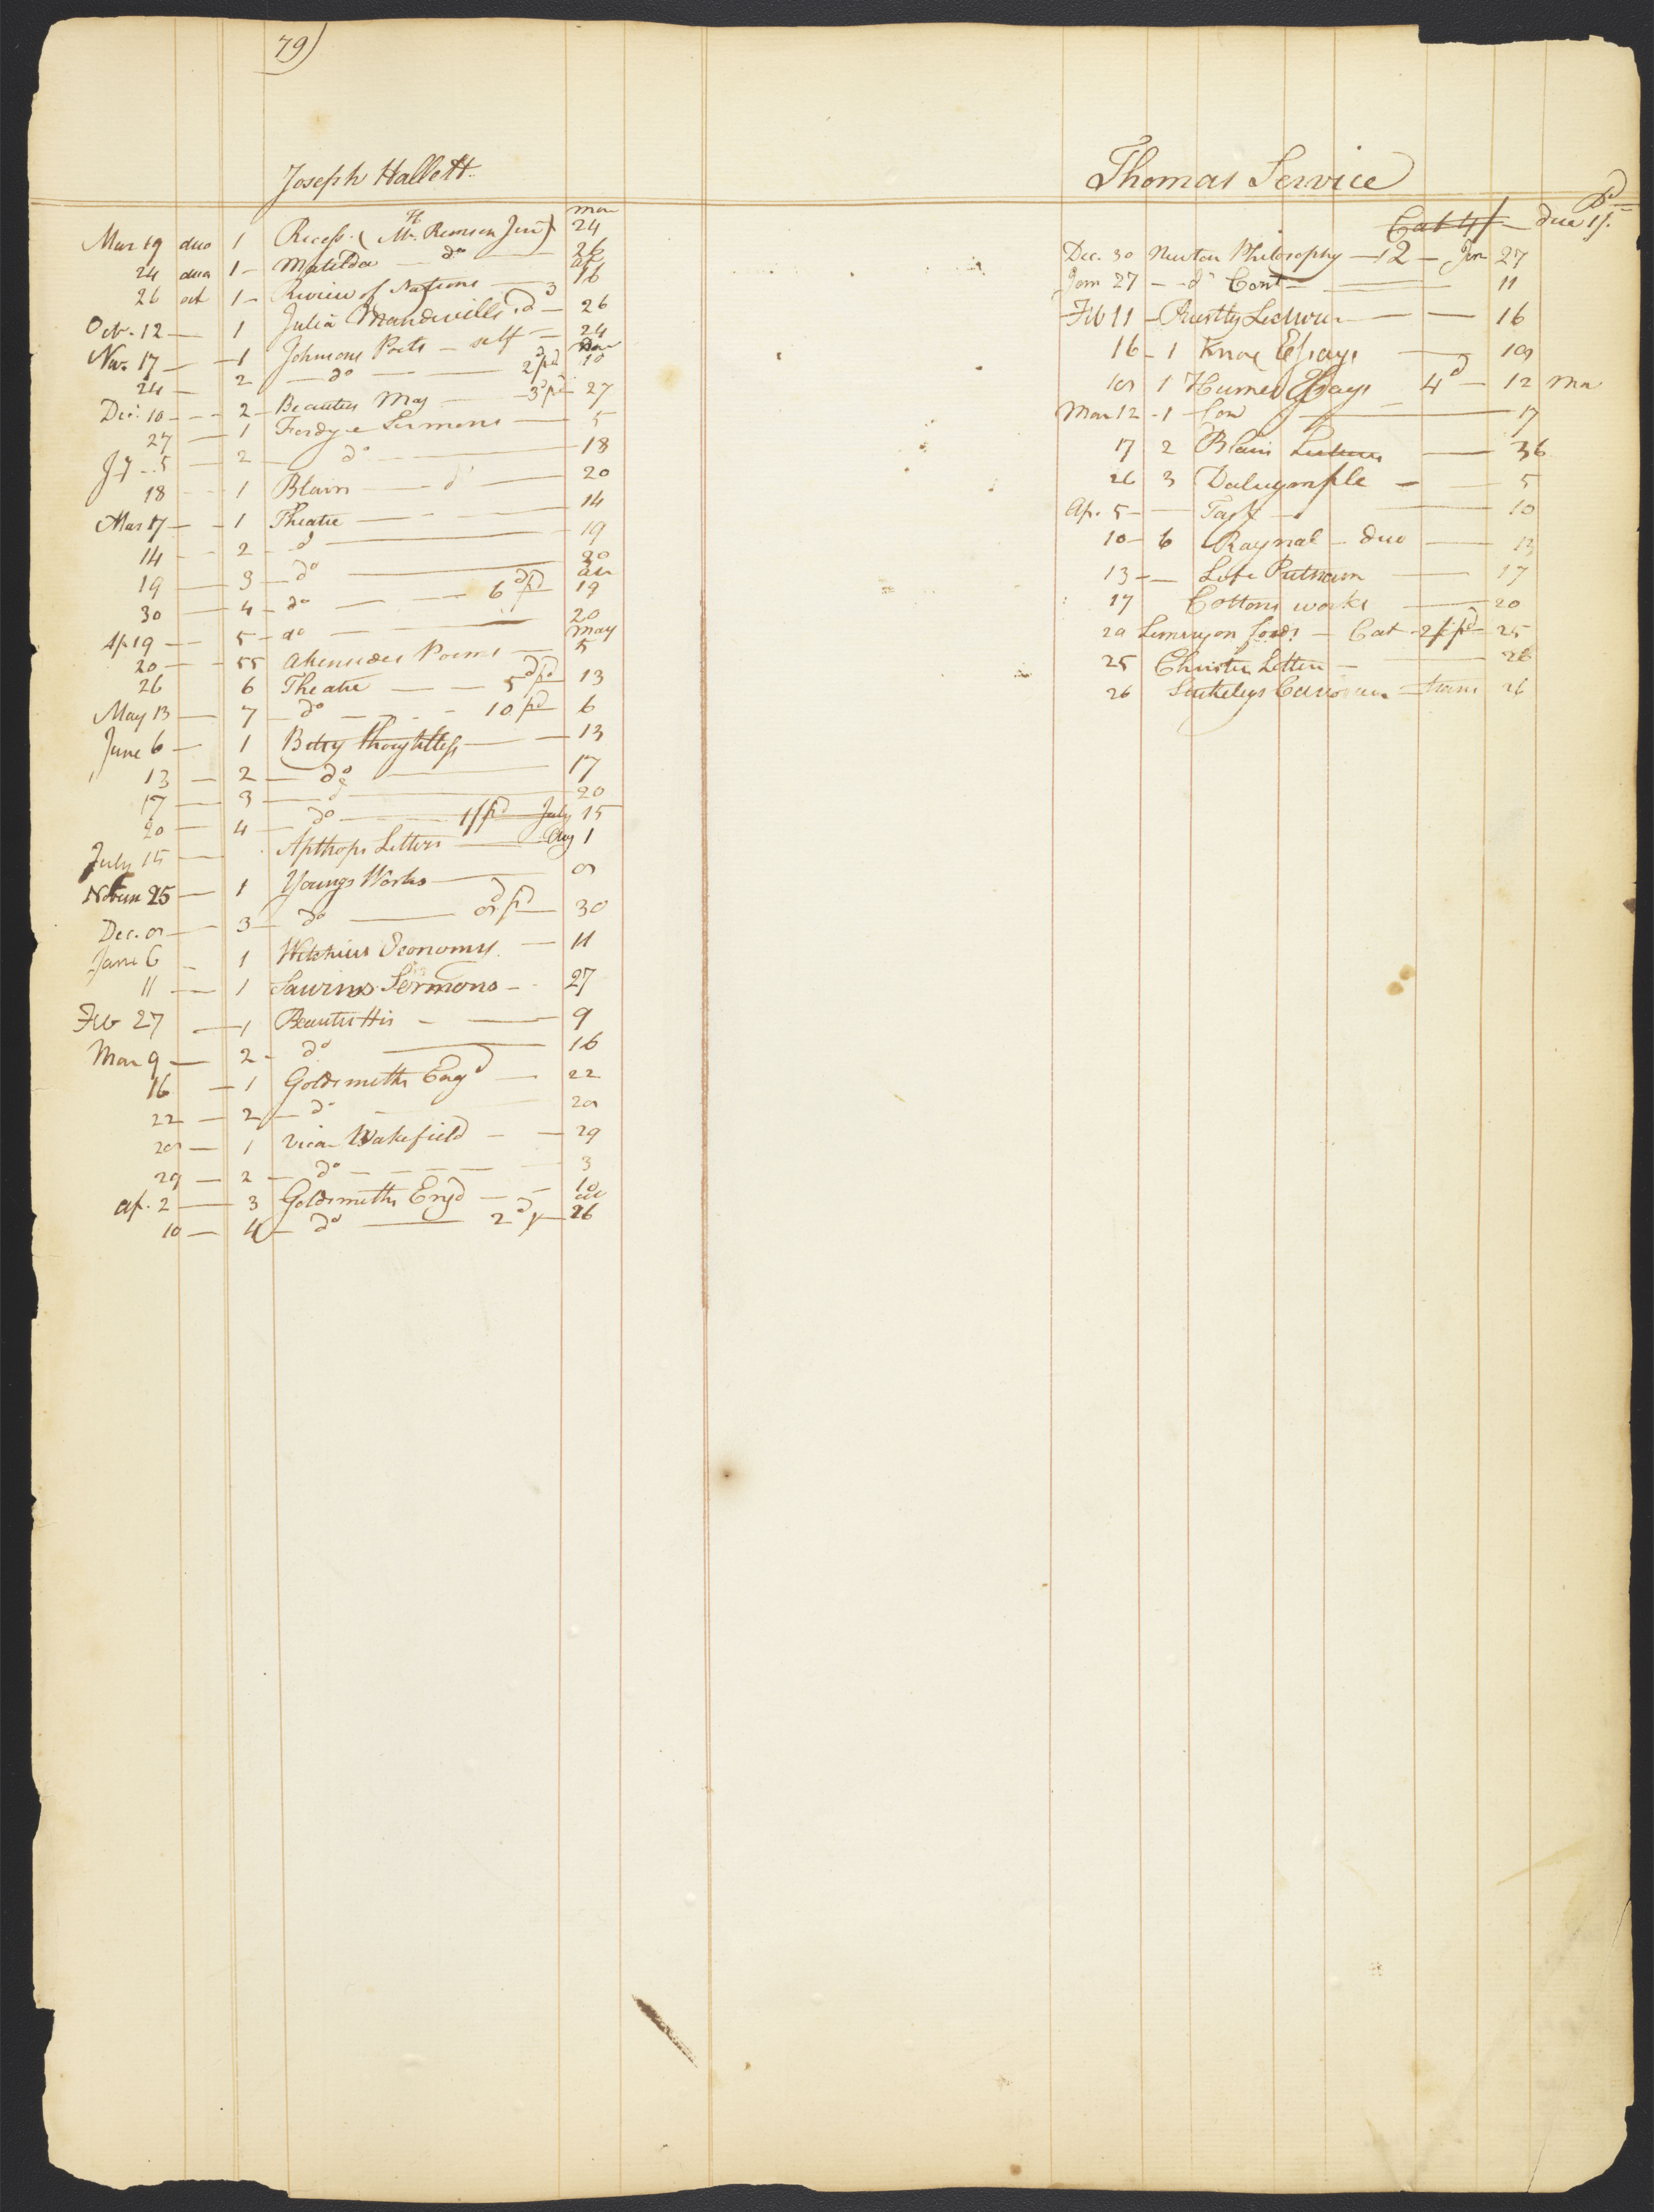 79)
Joseph Hallett.
Mar 19 duo 1 Recess. (Mr. Remsen Junr) Mar 24
24 duo 1 - Matilda - do - 26
26 oct 1 - Review of Nations - ap 16
Oct. 12 - 1 Julia Mandevills 3d - 26
Nov. 17 - 1 Johnsons Poets - self - 24
24 - 2 - do - 2d pd 10
Dec. 10 - 2 - Beauties Mag - 3d pd 27
27 - 1 Fordyce Sermons - 5
Jy - 5 - 2 - do - 18
18 - 1 Blairs - do - 20
Mar 7 - 1 Theatre - 14
14 - 2 - do - 19
19 - 3 - do - 30
30 - 4 - do - 6d pd 19
Ap 19 - 5 - do - 20
20 - 55 Akensides Poems - May 5
26 6 Theatre - 5d pd 13
May 13 - 7 - do - 10 pd 6
June 6 - 1 Betsy Thoughtless - 13
13 - 2 - do - 17
17 - 3 - do - 20
20 - 4 - do - 1/ pd July 15
July 15 - Apthorps Letters - Aug 1
Novem 25 - 1 Youngs Works - 8
Dec. 8 - 3 - do - 8d pd - 30
Jane 6 - 1 Economy - 11
11 - 1 Saurins Sermons - 27
Feb 27 - 1 Beauties His - 9
Mar 9 - 2 - do - 16
16 - 1 Goldsmiths Engd - 22
22 - 2 - do - 28
28 - 1 Vicar Wakefield - 29
29 - 2 - do - 3
ap. 2 - 3 Goldsmiths Engd - 10
10 - 4 - do - 2d 26
Thomas Service
Cat 4/ - due 1/. Pd
Dec. 30 Newton Philosophy - 12 - Jan 27
Jan 27 - do Cont - 11
Feb 11 - Priestly Lectures - 16
16 - 1 Knox Essays - 18
18 1 Humes Essays 4d - 12 Mar
Mar 12 - 1 - Cow - 17
17 2 Blairs Lectures - 26
26 3 Dalrymple - 5
Ap. 5 - Task - 10
10 - 6 Raynal - duo - 13
13 - Life Putnam - 17
17 Cottons works - 20
20 on - Cat - 2/ pd - 25
25 Letters - 26
26 - 26